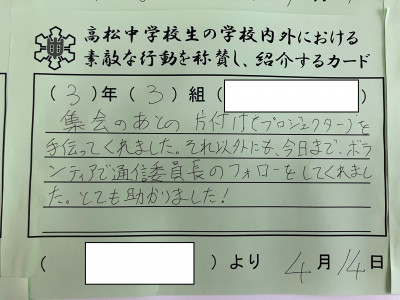 高松中学校生の学校内外における
素敵な行動を称賛し、紹介するカード
(3)年(3)組( )
集会のあとの片付け(プロジェクター)を
手伝ってくれました。それ以外にも、今日まで、ボラ
ンティアで通信委員長のフォローをしてくれまし
た。とても助かりました!
( )より 4月14日